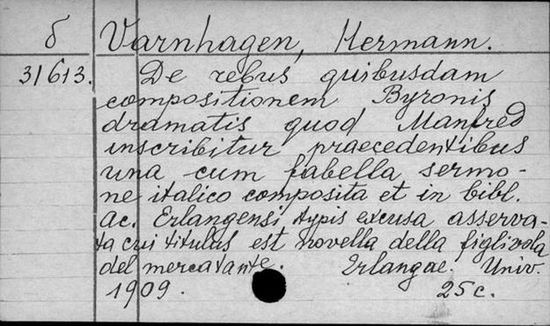 δ Varnhagen, Hermann.
31613. De rebus quibusdam
compositionem Byronis
dramatis quod Manfred
inscribitur praecedentibus
una cum fabella sermo-
ne italico composita et in bibl.
ac. Erlangensi typis excusa asserva-
ta cui titulus est novella della figlivola
del mercatante. Erlangae. Univ.
1909. 25c.